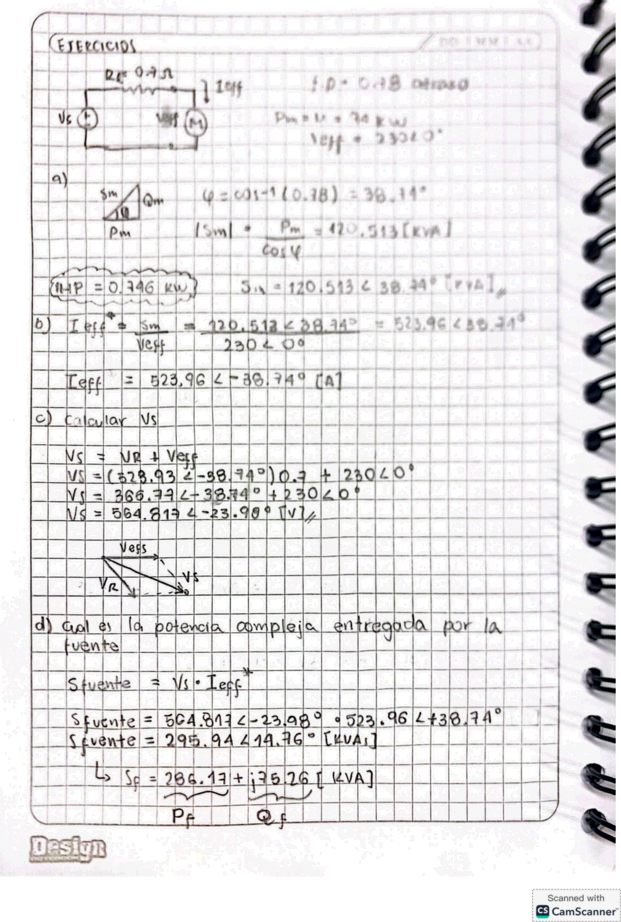 EJERCICIOS
R = 0.7 Ω
Ieff
f.p = 0.78 atraso
Vs
Veff
M
Pm = = 94 KW
Veff = 230∠0°
a)
Sm
Qm
φ
Pm
φ = cos-1 (0.78) = 38.74°
|Sm| = Pm / cosφ = 120.513 [KVA]
1HP = 0.746 KW
Sm = 120.513 ∠ 38.74° [KVA]
b) Ieff* = Sm / Veff = 120.513 ∠ 38.74° / 230 ∠ 0° = 523.96 ∠ 38.74°
Ieff = 523.96 ∠ -38.74° [A]
c) Calcular Vs
Vs = VR + Veff
Vs = (523.93 ∠ -38.74°) 0.7 + 230∠0°
Vs = 366.77 ∠ -38.74° + 230∠0°
Vs = 564.817 ∠ -23.98° [V]
Veff
VR
Vs
d) Cual es la potencia compleja entregada por la
fuente
Sfuente = Vs · Ieff*
Sfuente = 564.817 ∠ -23.98° · 523.96 ∠ +38.74°
Sfuente = 295.94 ∠ 14.76° [KVAs]
↳ Sf = 286.17 + j75.26 [KVA]
Pf
Qf
Design
Scanned with
CS CamScanner